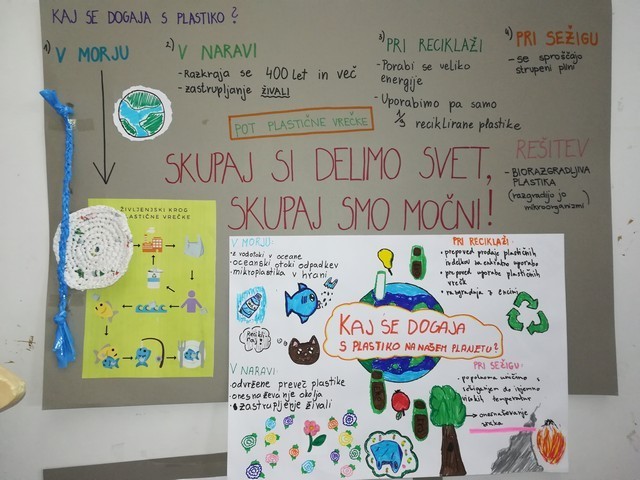 KAJ SE DOGAJA S PLASTIKO?
1) V MORJU
2) V NARAVI
- Razkraja se 400 let in več
- zastrupljanje ŽIVALI
3) PRI RECIKLAŽI
- Porabi se veliko
energije
- Uporabimo pa samo
1/3 reciklirane plastike
4) PRI SEŽIGU
- se sproščajo
strupeni plini
POT PLASTIČNE VREČKE
REŠITEV
- BIORAZGRADLJIVA
PLASTIKA
(razgradijo jo
mikroorganizmi)
SKUPAJ SI DELIMO SVET,
SKUPAJ SMO MOČNI!
ŽIVLJENJSKI KROG
PLASTIČNE VREČKE
V MORJU:
oceane
oceanski otoki odpadkov
mikroplastika v hrani
Recikliraj!
PRI RECIKLAŽI:
prepoved prodaje plastičnih
izdelkov za enkratno uporabo
prepoved uporabe plastičnih
vrečk
razgradnja z encimi
KAJ SE DOGAJA
S PLASTIKO NA NAŠEM PLANETU?
V NARAVI:
odvržene preveč plastike
onesnaževanje okolja
zastrupljanje živali
PRI SEŽIGU:
popolnoma uničimo s
sežiganjem do izjemno
visokih temperatur
→ onesnaževanje
zraka